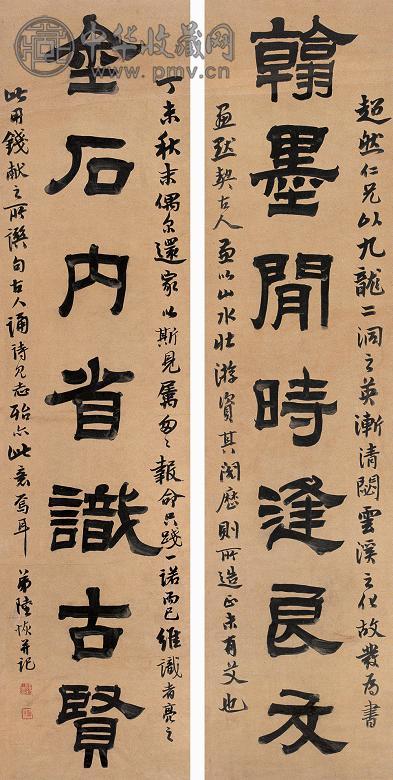 超然仁兄以九龍二洞之英漸清閟雲溪之化故發為書
翰墨閒時逢良友
畫默契古人益以山水壯游資其閱歷則所造正未有艾也
丁未秋末偶尔還家以斯見屬匆〻報命只踐一諾而已維識者亮之
金石内省識古賢
此用錢獻之所譔句古人誦詩見志殆亦此意
弟陸恢并記
中华收藏网
www.pmv.cn